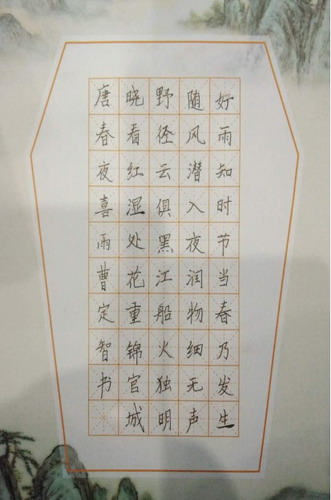 好雨知时节当春乃发生
随风潜入夜润物细无声
野径云俱黑江船火独明
晓看红湿处花重锦官城
唐春夜喜雨曹定智书